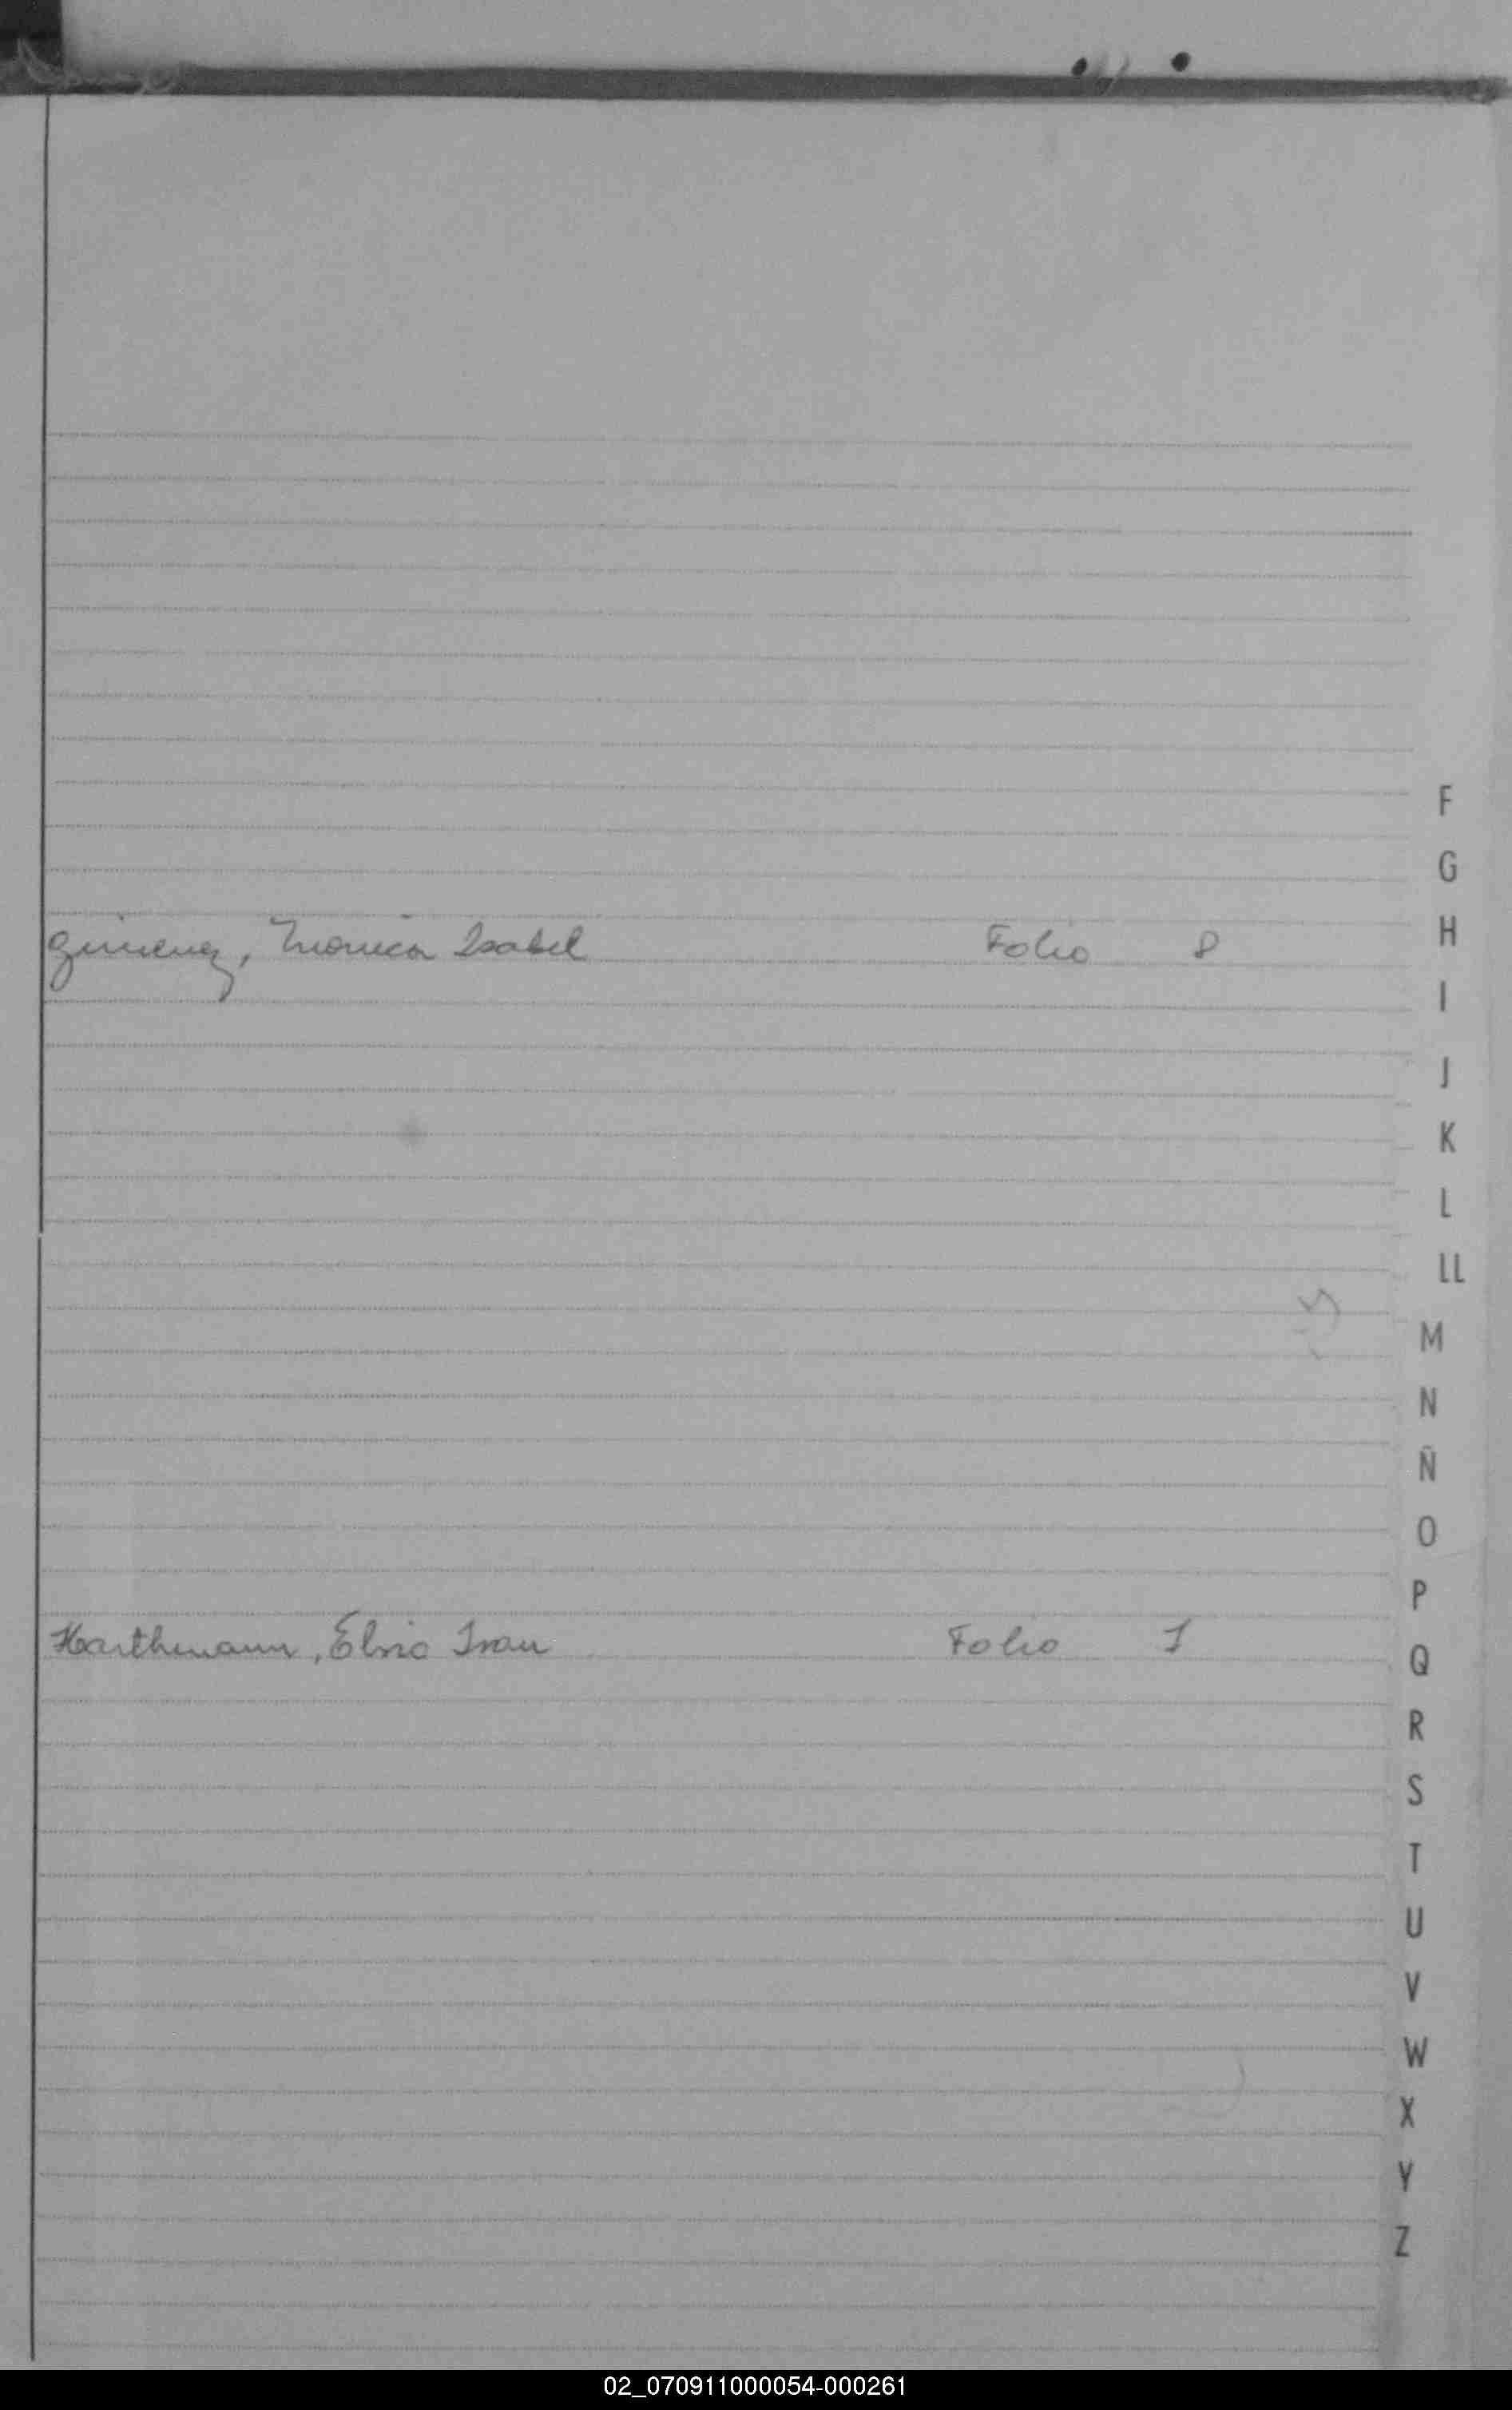 F
G
Gimenez, Monica Isabel Folio 8
H
I
J
K
L
LL
M
N
Ñ
O
P
Harthmann, Elvio Ivan Folio 1
Q
R
S
T
U
V
W
X
Y
Z
02_070911000054-000261